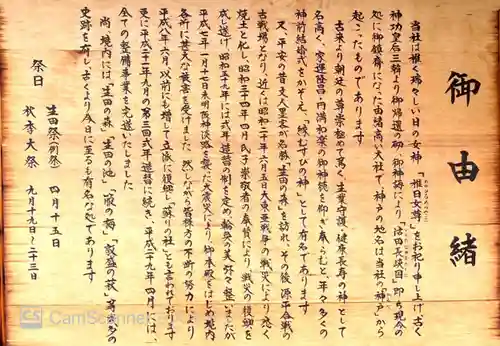 御由緒
当社は稚く瑞々しい日の女神「稚日女尊」をお祀り申し上げ、古く
わかひるめのみこと
神功皇后三韓より御帰還の砌、御神誨により「活田長狭国」即ち現今の
処に御鎮斎になった由緒高い大社で、神戸の地名は当社の「神戸」から
起こったものであります
古来より朝廷の尊崇極めて篤く、生業守護・健康長寿の神として
名高く、家運隆昌・円満和楽の御神徳を仰ぎ奉らむと、年々多くの
神前結婚式をかぞえ、「縁むすびの神」として有名であります
又、平安の昔文人墨客が名勝「生田の森」を訪れ、その後源平合戦の
古戦場となり、近くは昭和二十年六月五日大東亜戦争の戦災により悉く
焼土と化し、昭和三十四年四月氏子崇敬者の奉賛により、戦災の復興を
成し遂げ、昭和五十九年には式年造替の制を定め、輪奐の美弥々整いましたが
平成七年一月十七日未明阪神淡路を襲った大震災により、御本殿をはじめ境内
各所に甚大な被害を受けました。然しながら皆様方の不断の努力により
平成八年六月、以前にも増して立派に復興し、「蘇りの社」とも言われております
更に平成二十年九月の第三回式年造替に続き、平成二十九年四月には、
全ての整備事業を完遂いたしました
尚、境内には「生田の森」「生田の池」「箙の梅」「敦盛の萩」等多くの
史跡を有し、古くより今日に至るも有名な処であります
祭日
生田祭(例祭) 四月十五日
秋季大祭 九月十九日〜二十三日
CamScanner